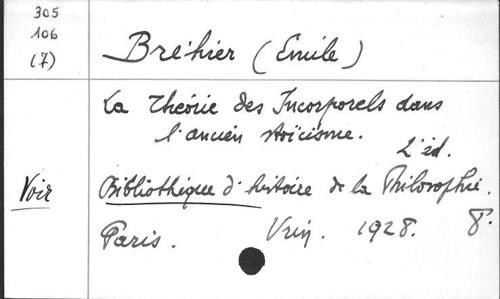 305
106
(7)
Bréhier (Emile)
La Théorie des Incorporels dans
l'ancien stoïcisme.
2'éd.
Voir
Bibliothèque d'histoire de la Philosophie.
Paris. Vrin. 1928. 8°.